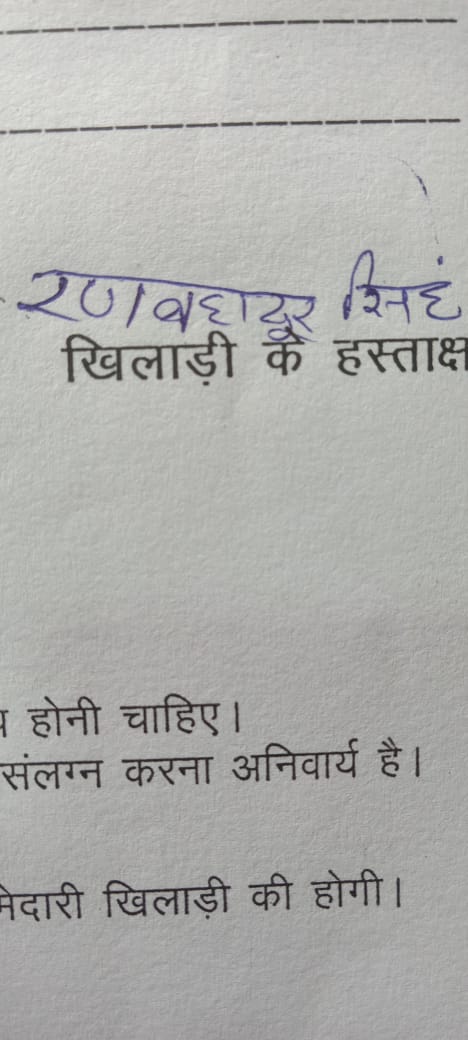 रणबहादूर सिहं
खिलाड़ी के हस्ताक्ष
होनी चाहिए।
संलग्न करना अनिवार्य है।
मेदारी खिलाड़ी की होगी।